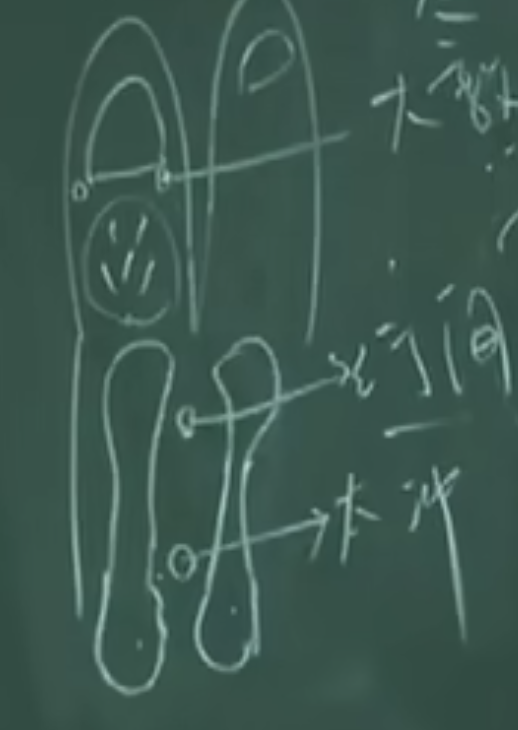 大敦
行间
太冲